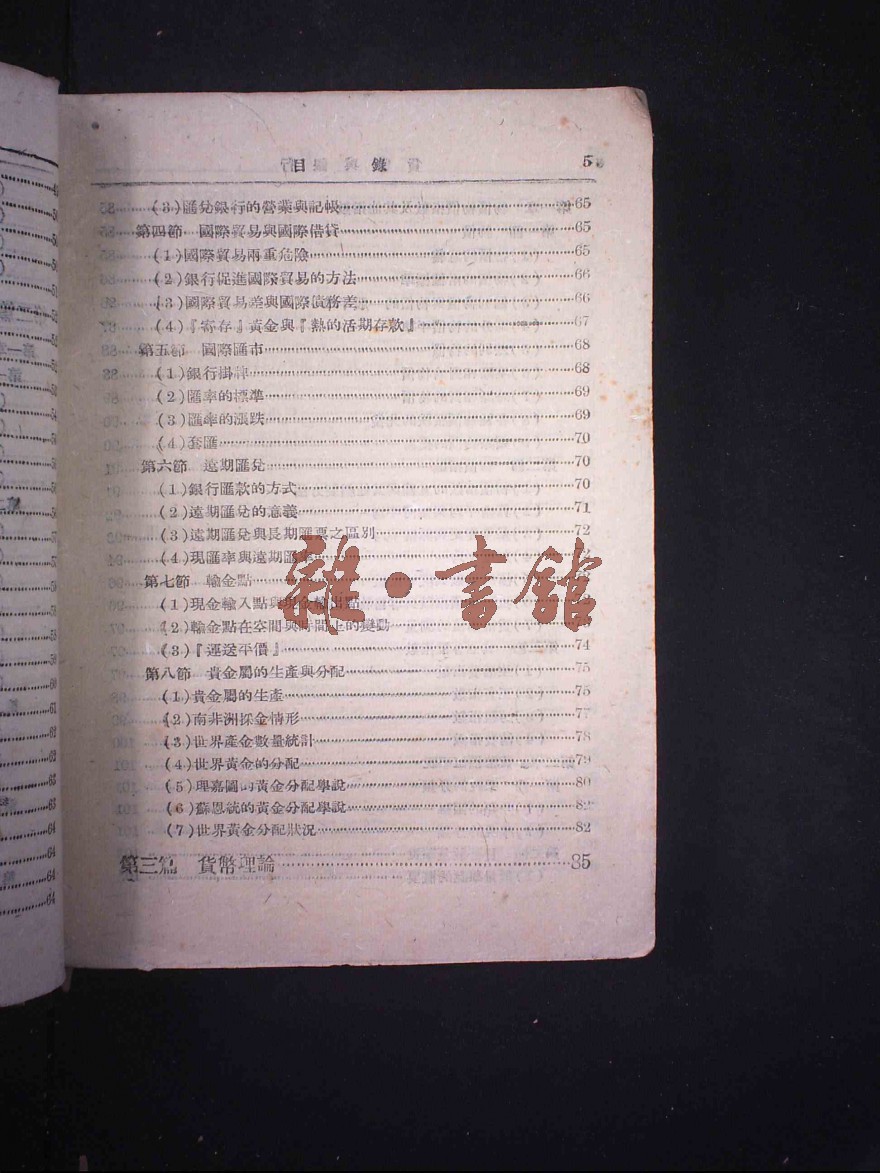 目錄 5
(3)匯兌銀行的營業與記帳 65
第四節 國際貿易與國際借貸 65
(1)國際貿易兩重危險 65
(2)銀行促進國際貿易的方法 66
(3)國際貿易差與國際債務差 66
(4)『寄存』黃金與『熱的活期存款』 67
第五節 國際匯市 68
(1)銀行掛牌 68
(2)匯率的標準 69
(3)匯率的漲跌 69
(4)套匯 70
第六節 遠期匯兌 70
(1)銀行匯款的方式 70
(2)遠期匯兌的意義 71
(3)遠期匯兌與長期匯票之區別 72
(4)現匯率與遠期匯
第七節 輸金點
(1)現金輸入點與現金輸出點
(2)輸金點在空間與時間上的變動
(3)『運送平價』 74
第八節 貴金屬的生產與分配 75
(1)貴金屬的生產 75
(2)南非洲採金情形 77
(3)世界產金數量統計 78
(4)世界黃金的分配 79
(5)理嘉圖的黃金分配學說 80
(6)蘇恩統的黃金分配學說 82
(7)世界黃金分配狀況 82
第三篇 貨幣理論 85
雜·書館